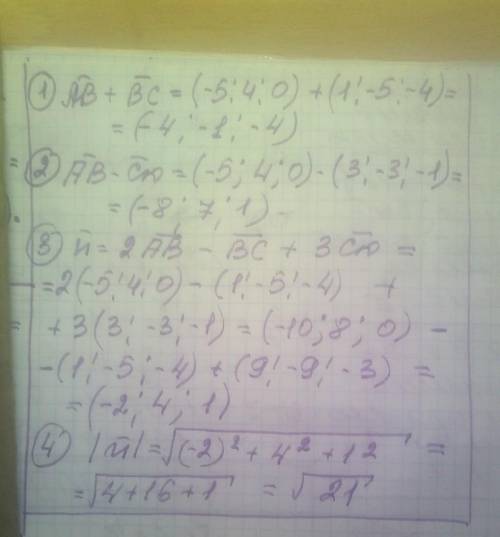 ① AB̅ + B̅C = (-5; 4; 0) + (1; -5; -4) =
= (-4; -1; -4)
② AB̅ - C̅ю = (-5; 4; 0) - (3; -3; -1) =
= (-8; 7; 1)
③ n̅ = 2AB̅ - BC̅ + 3C̅ю =
= 2(-5; 4; 0) - (1; -5; -4) +
+ 3(3; -3; -1) = (-10; 8; 0) -
- (1; -5; -4) + (9; -9; -3) =
= (-2; 4; 1)
④ |n̅| = √(-2)² + 4² + 1² =
= √4 + 16 + 1 = √21